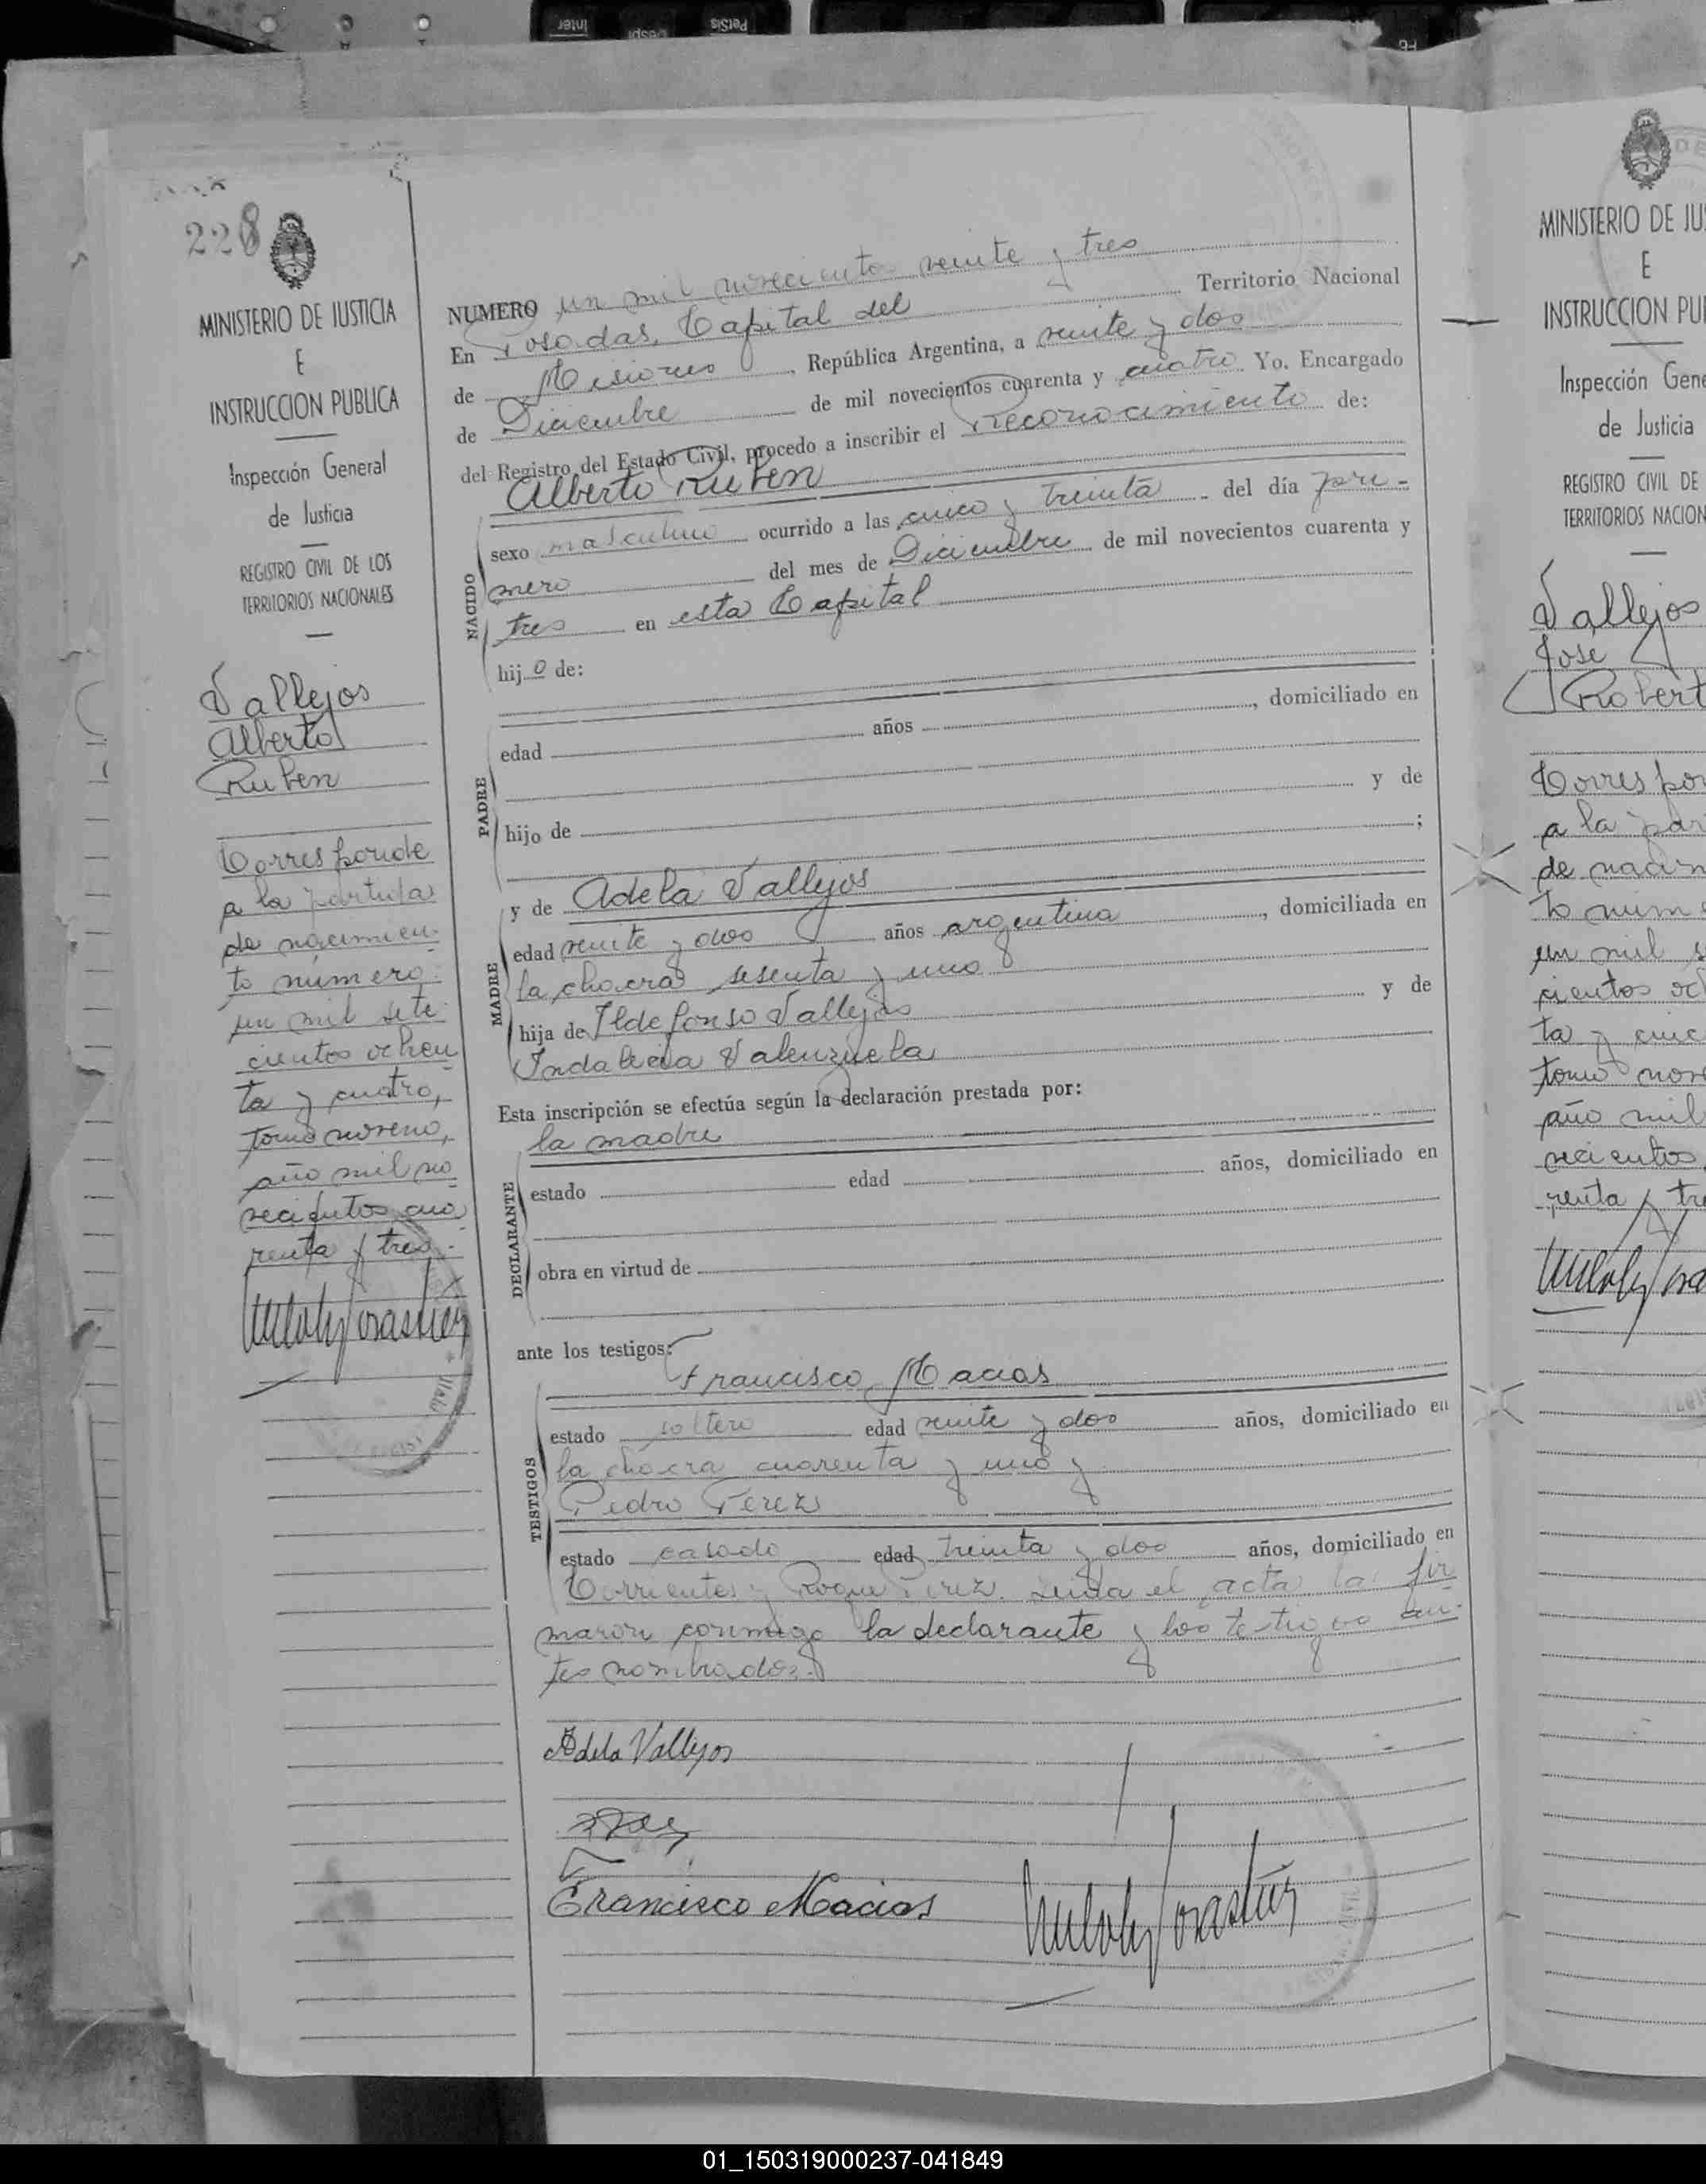 Inter
Despl
PetSis
228
MINISTERIO DE JUSTICIA
E
INSTRUCCION PUBLICA
Inspección General
de Justicia
REGISTRO CIVIL DE LOS
TERRITORIOS NACIONALES
Vallejos
Alberto
Ruben
Corresponde
a la partida
de nacimien-
to número
un mil sete
cientos ochen
ta y cuatro,
tomo noveno,
año mil no
vecientos cua
renta y tres.-
NUMERO un mil novecientos veinte y tres
En Posadas, Capital del Territorio Nacional
de Misiones, República Argentina, a veinte y dos
de Diciembre de mil novecientos cuarenta y cuatro Yo. Encargado
del Registro del Estado Civil, procedo a inscribir el Reconocimiento de:
Alberto Ruben
NACIDO
sexo masculino ocurrido a las cinco y treinta del día pri-
mero del mes de Diciembre de mil novecientos cuarenta y
tres en esta Capital
hijo de:
PADRE
edad años , domiciliado en
hijo de y de
;
MADRE
y de Adela Vallejos
edad veinte y dos años argentina, domiciliada en
la chacra sesenta y uno
hija de Ildefonso Vallejos y de
Indalecia Valenzuela
Esta inscripción se efectúa según la declaración prestada por:
la madre
DECLARANTE
estado edad años, domiciliado en
obra en virtud de
ante los testigos:
Francisco Macias
TESTIGOS
estado soltero edad veinte y dos años, domiciliado en
la chacra cuarenta y uno y
Pedro Perez
estado casado edad treinta y dos años, domiciliado en
Corrientes y Roque Perez. Leida el acta la fir
maron conmigo la declarante y los testigos an-
tes nombrados.
Adela Vallejos
Francisco Macias
MINISTERIO DE JU
E
INSTRUCCION PU
Inspección Gene
de Justicia
REGISTRO CIVIL DE
TERRITORIOS NACION
Vallejos
Jose
Robert
Correspon
a la par
de nacim
to núme
un mil s
cientos oc
ta y cinc
tomo nove
año mil
vecientos
renta y tre
01_150319000237-041849